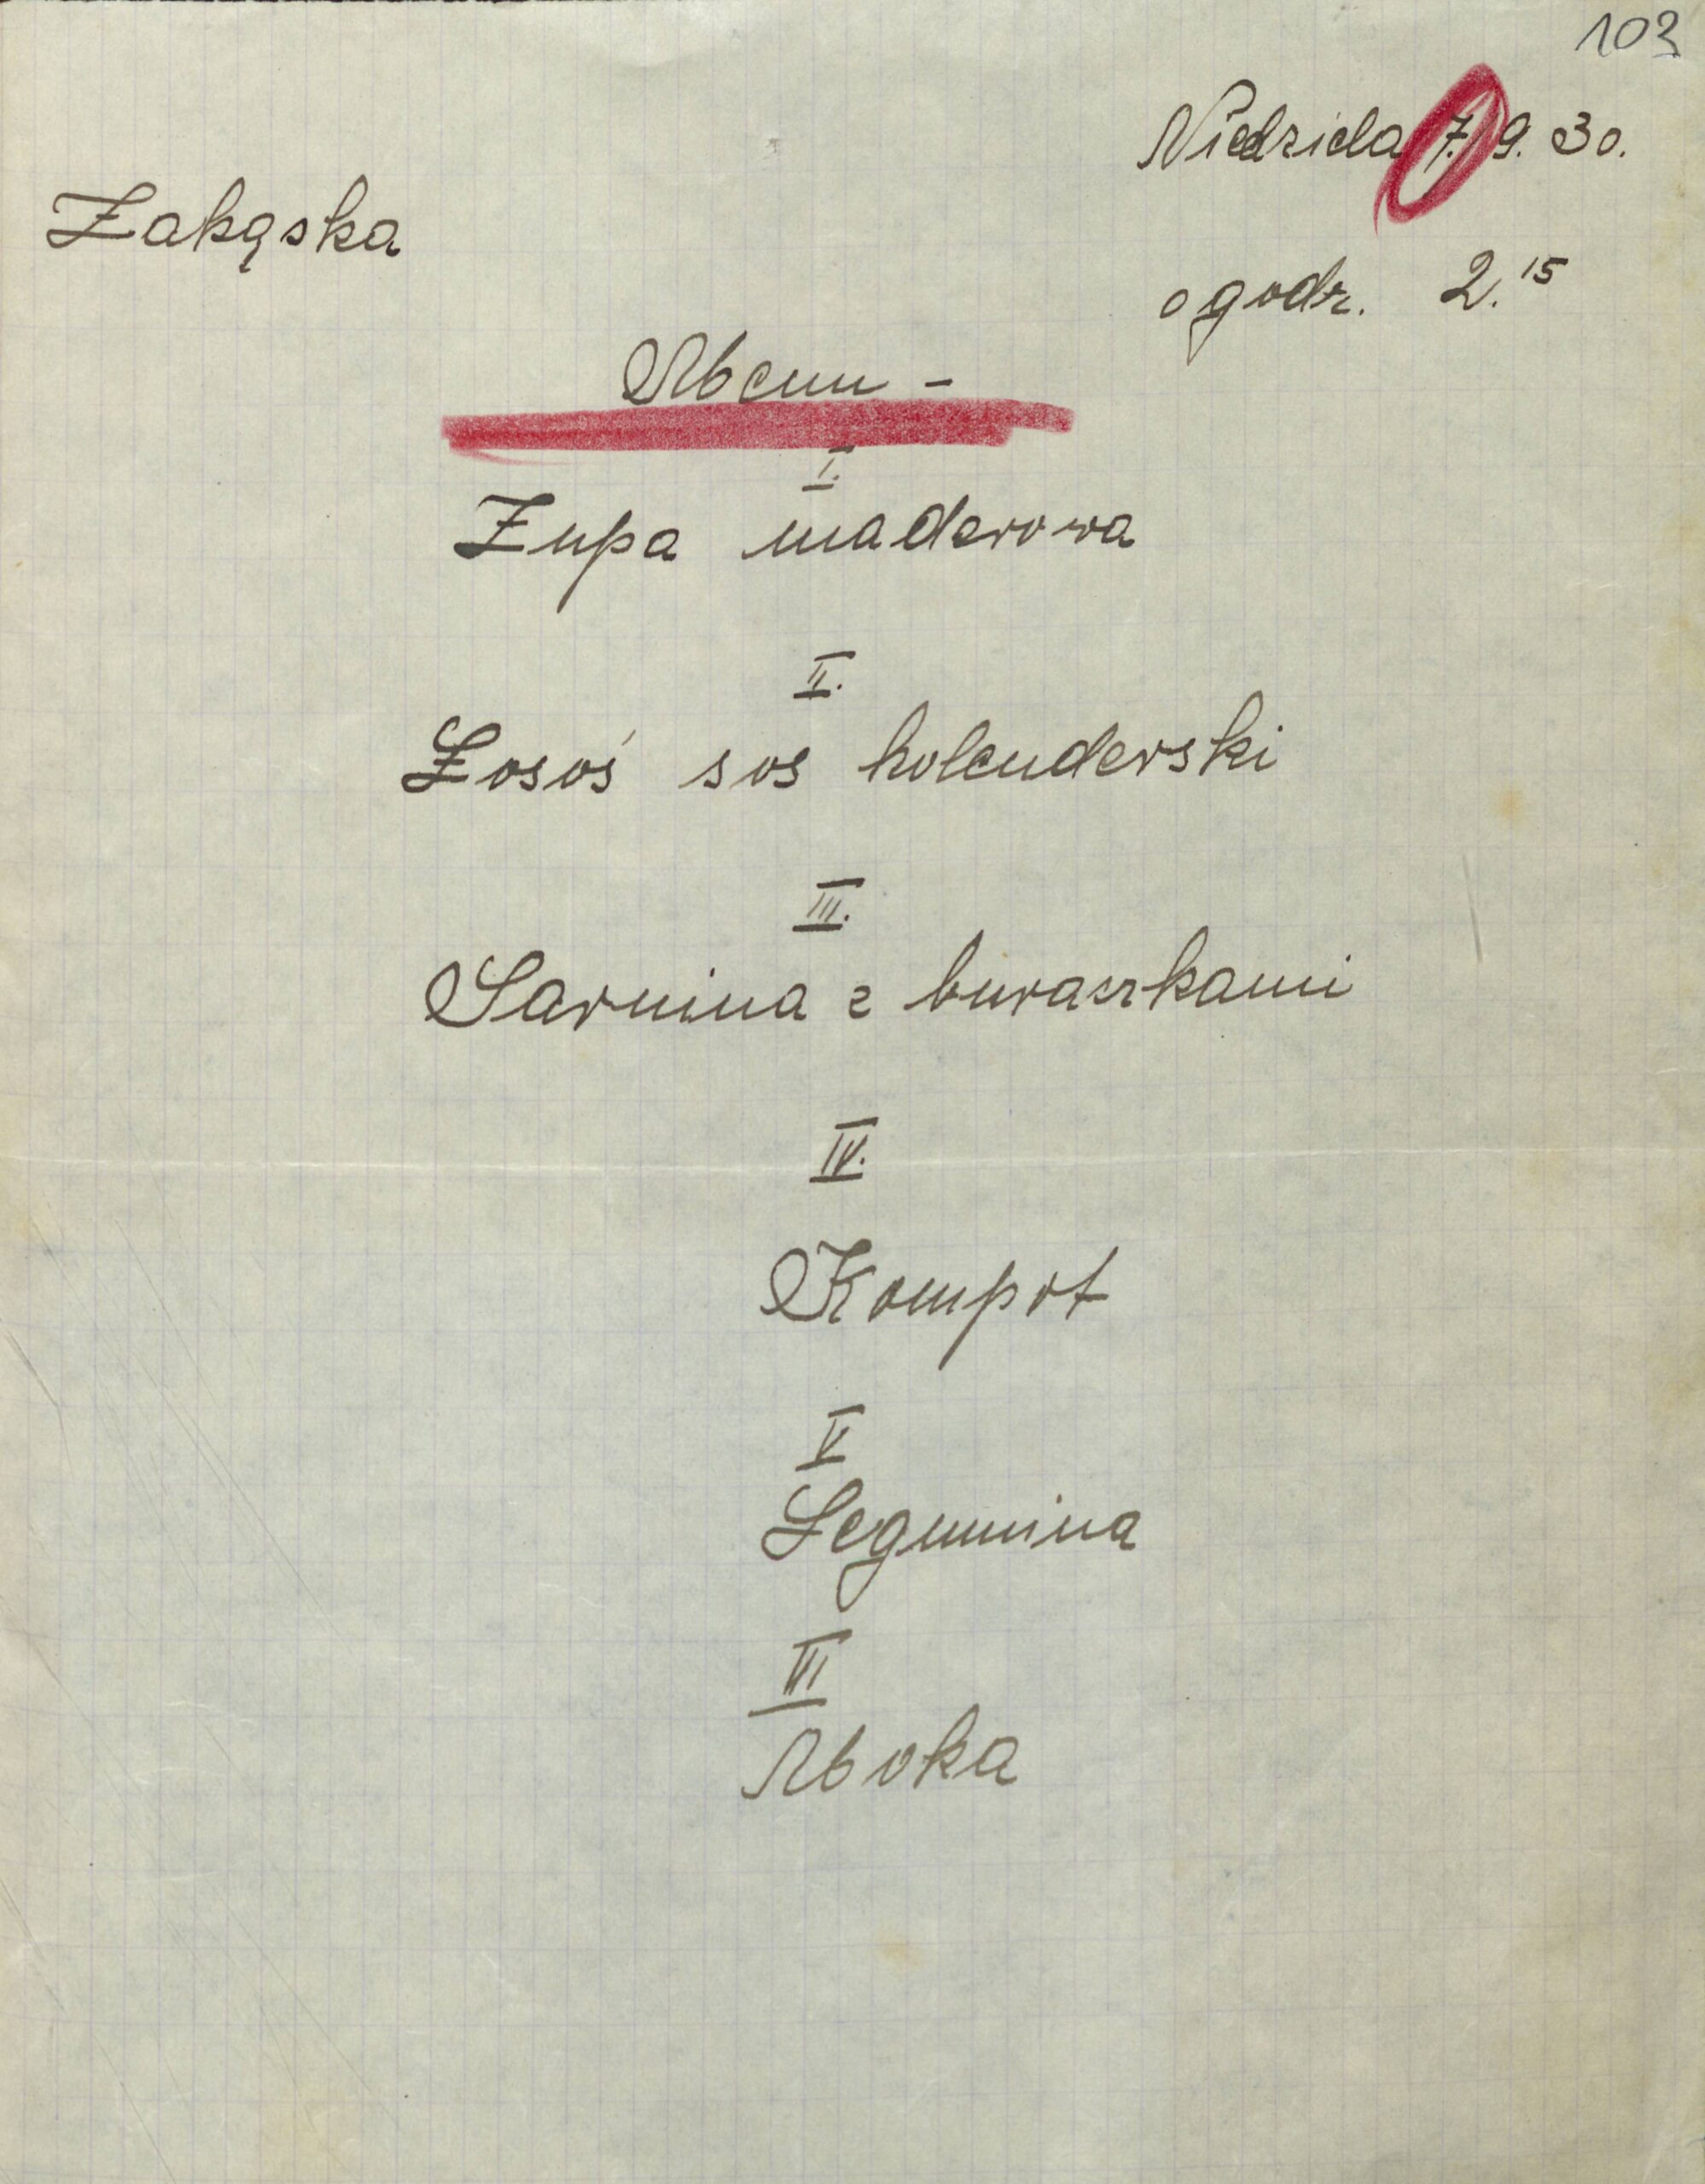 103
Niedziela 7. 9. 30.
Zakąska
o godz. 2.15
Menu -
I.
Zupa maderowa
II.
Łosoś sos holenderski
III.
Sarnina z buraczkami
IV.
Kompot
V
Legumina
VI
Moka